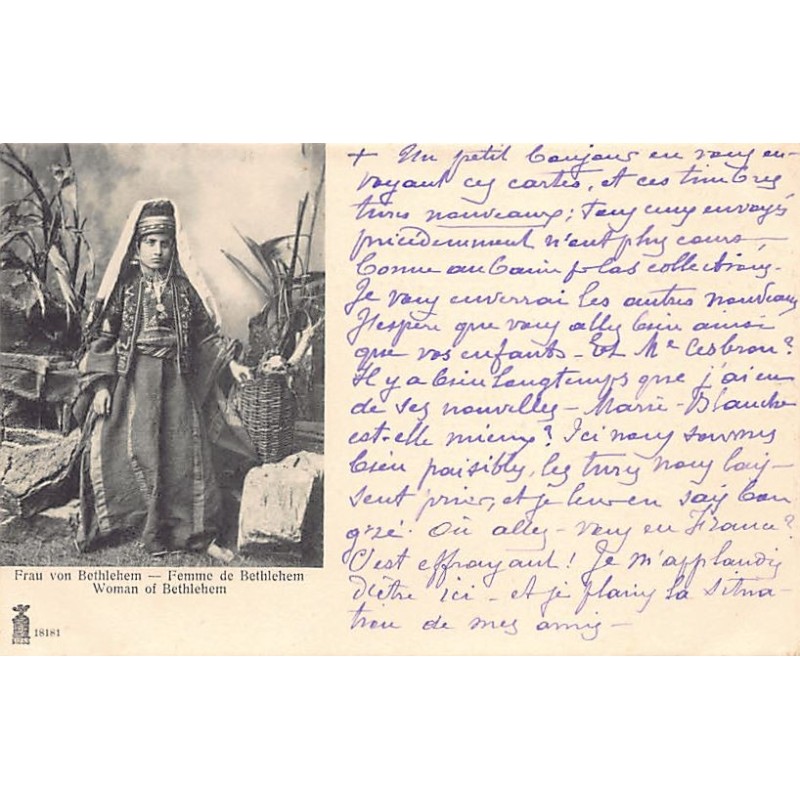 Frau von Bethlehem — Femme de Bethlehem
Woman of Bethlehem
18181
+ Un petit bonjour en vous en-
voyant ces cartes, et ces timbres
turcs nouveaux; tous ceux envoyés
précédemment n'ont plus cours,
bonne aubaine p. les collections.
Je vous enverrai les autres nouveaux
J'espère que vous allez bien ainsi
que vos enfants - Et Me Cesbron?
Il y a bien longtemps que j'ai eu
de ses nouvelles - Marie-Blanche
est-elle mieux? Ici nous sommes
bien paisibles, les turcs nous lais-
sent prier, et je leur en sais bon
gré. Où allez-vous en France?
C'est effrayant! Je m'applaudis
d'être ici - et je plains la situa-
tion de mes amis -